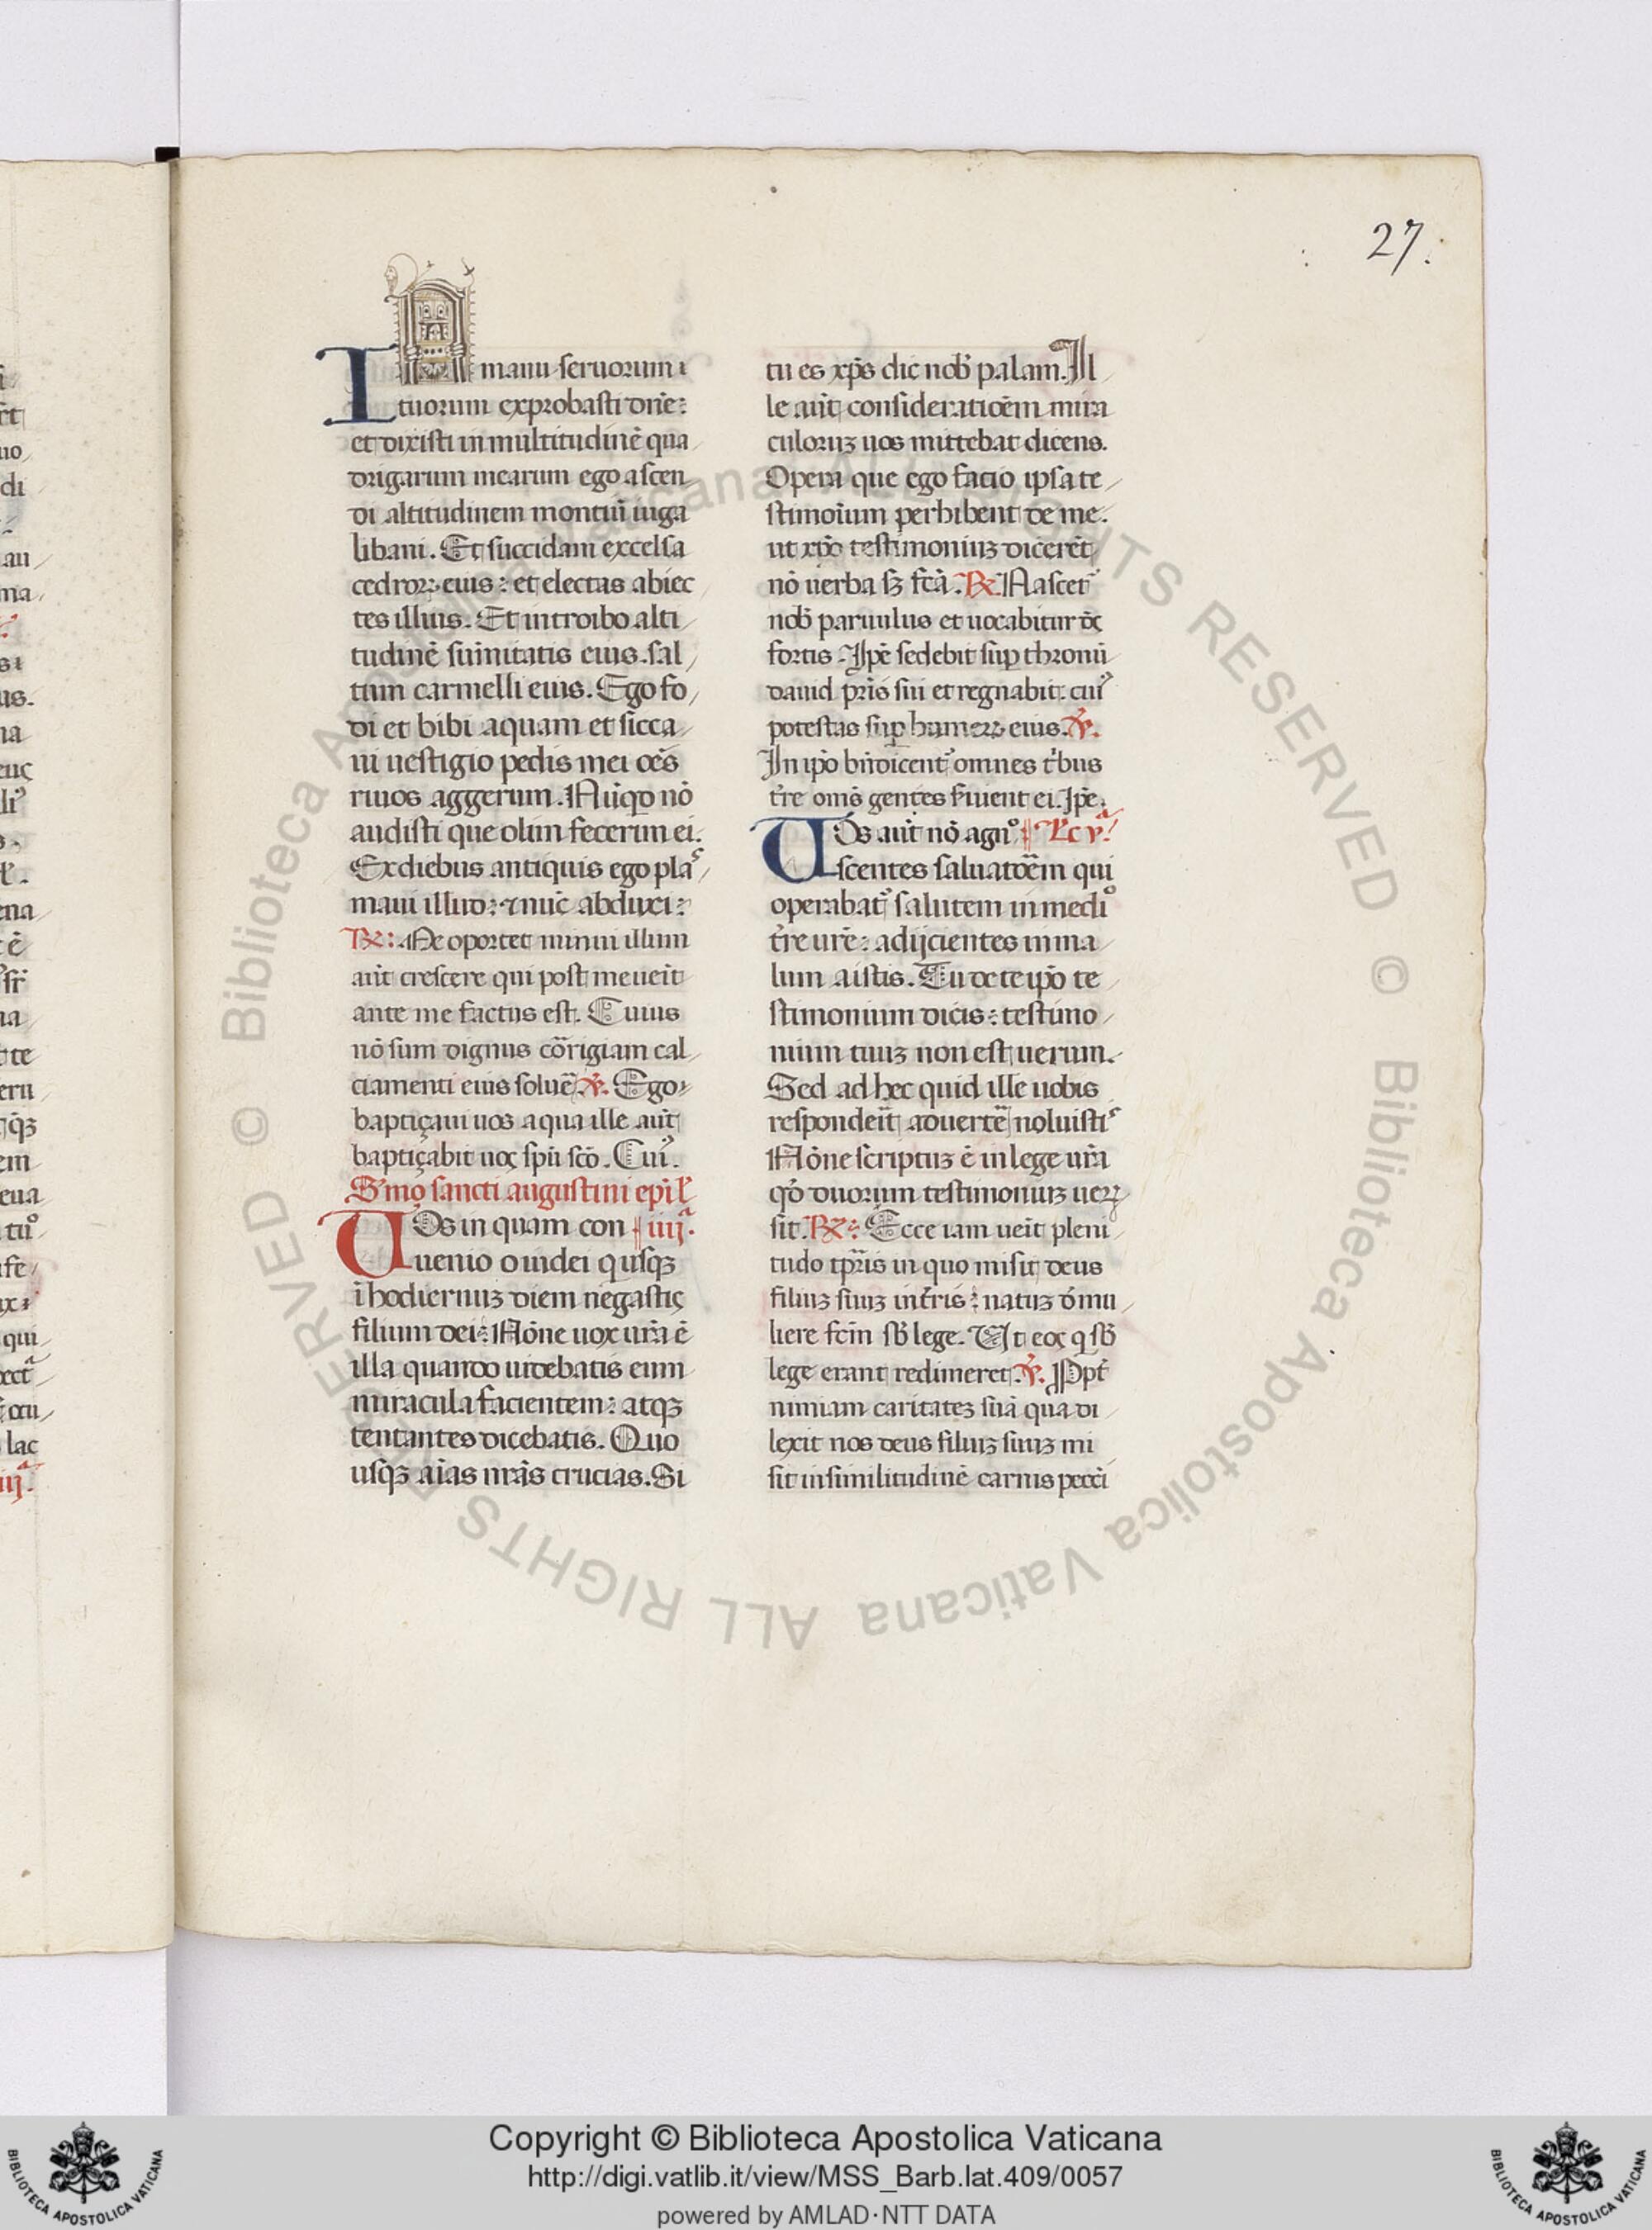 27.
IN manu seruorum
tuorum exprobasti dn̄e:
et dixisti in multitudinē qua
drigarum mearum ego ascen
di altitudinem montiū iuga
libani. Et succidam excelsa
cedroꝝ eius: et electas abiec
tes illius. Et introibo alti
tudinē sūmitatis eius. sal
tum carmelli eius. Ego fo
di et bibi aquam et sicca
ui uestigio pedis mei oēs
riuos aggerum. Nūqd nō
audisti que olim fecerim ei.
Ex diebus antiquis ego plas
maui illud: ⁊ nūc abduxi:
℟: Me oportet minui illum
aūt crescere qui post me ueīt
ante me factus est. Cuius
nō sum dignus cōrigiam cal
ciamenti eius soluē ℣. Ego
baptiçaui uos aqua ille aūt
baptiçabit uoς spū scō. Cui9.
Smo sancti augustini epī.
UOs in quam con iiijᵃ.
uenio o iudei qusqꝫ
ī hodiernuꝫ diem negastiς
filium dei: Nōne uox ur̄a ē
illa quando uidebatis eum
miracula facientem: atqꝫ
tentantes dicebatis. Quo
usqꝫ aīas nr̄as crucias. Si
tu es xp̄s dic nob palam. Il
le aūt consideratiōēm mira
culoruꝫ uos mittebat dicens.
Opera que ego facio ipsa te
stimoīum perhibent de me.
ut xp̄o testimoniuꝫ dicerēt
nō uerba sꝫ fc̄ā. ℟. Nascet
nob paruulus et uocabitur dς
fortis. Ipē sedebit sup thronū
dauid pr̄is sui et regnabit: cui9
potestas sup humerꝝ eius. ℣.
In ipō bn̄dicent omnes tbus
tr̄e om̄s gentes sūient ei. Ipē.
UOs aūt nō agno Lc vᵃ
scentes saluatoēm qui
operabat salutem in medio
tr̄e ur̄e: adijcientes in ma
lum aistis. Tu de te ip̄o te
stimonium dicis: testimo
nium tuuꝫ non est uerum.
Sed ad hec quid ille uobis
respondeīt aduertē noluistis
Nōne scriptuꝫ ē in lege ur̄a
qd duorum testimoniuꝫ ueꝝ
sit. ℟: Ecce iam ueīt pleni
tudo tpr̄is in quo misit deus
filiuꝫ suuꝫ intr̄is: natuꝫ d mu
liere fcm̄ sb lege. Ut eoς q sb
lege erant redimeret. ℣. Ppt
nimiam caritateꝫ suā qua di
lexit nos deus filiuꝫ suuꝫ mi
sit in similitudinē carnis pecci
© Biblioteca Apostolica Vaticana ALL RIGHTS RESERVED © Biblioteca Apostolica Vaticana ALL RIGHTS RESERVED
Copyright © Biblioteca Apostolica Vaticana
http://digi.vatlib.it/view/MSS_Barb.lat.409/0057
powered by AMLAD·NTT DATA
BIBLIOTECA APOSTOLICA VATICANA
BIBLIOTECA APOSTOLICA VATICANA